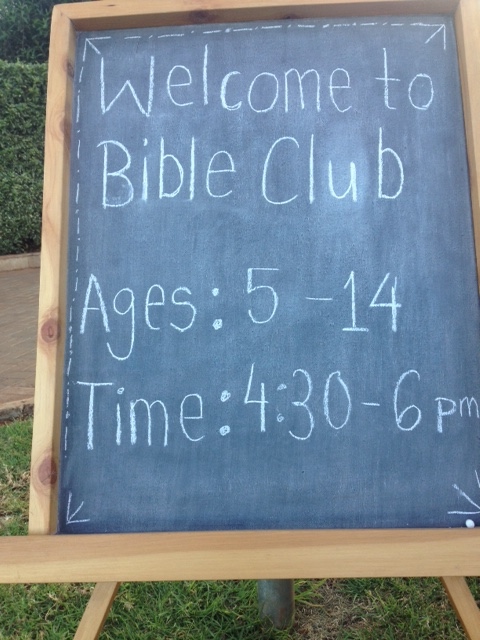 Welcome to
Bible Club
Ages: 5 - 14
Time: 4:30 - 6 pm